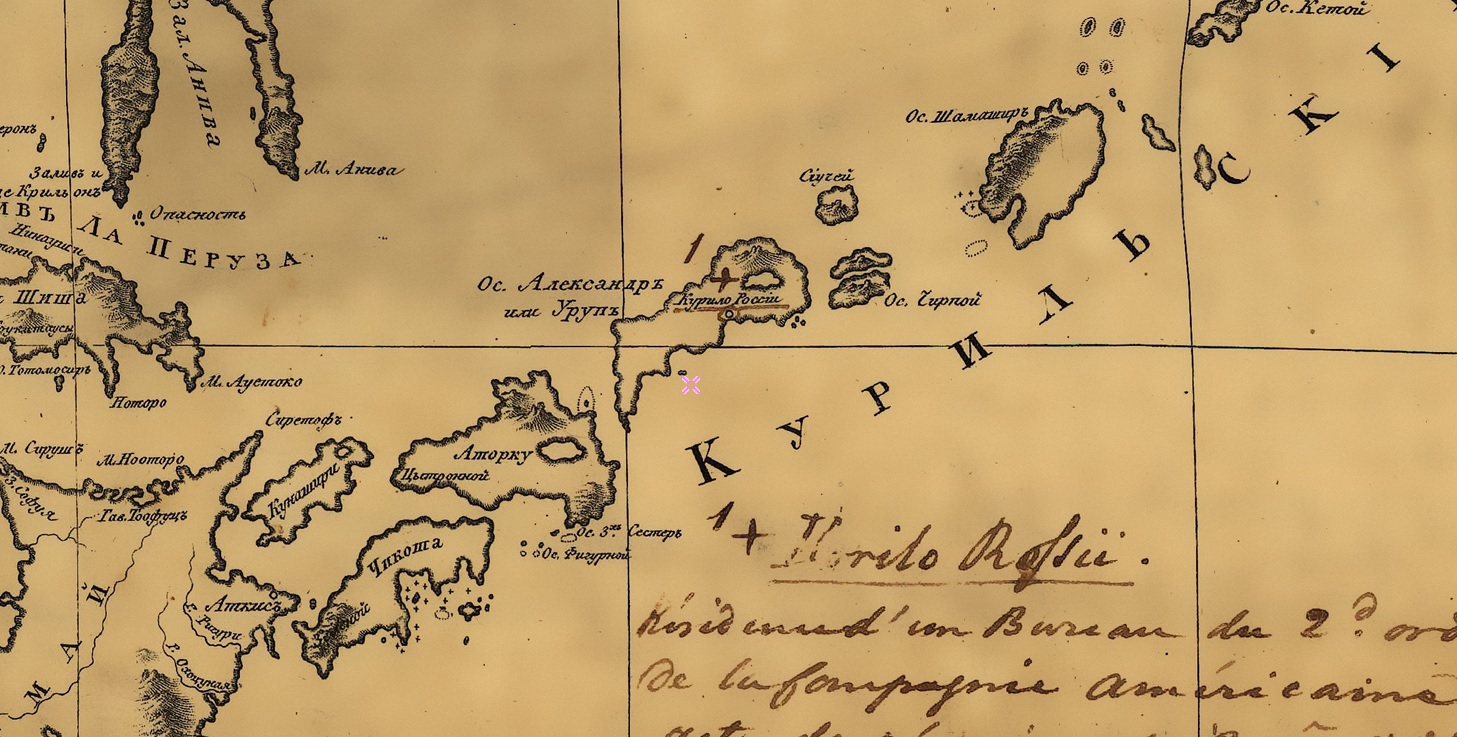 Ос. Кетой
Зал. Анива
Ос. Шамаширъ
М. Анива
Сіучей
Заливъ и
Крильонъ
Опасность
Ла Перуза
1
Ос. Александръ
или Урупъ
Курило Россіи
Ос. Чирпой
Шиша
М. Ауетоко
Ноторо
Сиретофъ
М. Сирушъ
М. Нооторо
Кунашири
Аторку
Гав. Тоофуцъ
Чикоша
Ос. 3хъ Сестеръ
Ос. Фигурной
Аткисъ
МАЙ
КУРИЛЬСКІ
1 + Kurilo Rossii.
Résidence d'un Bureau du 2d
De la Compagnie américaine